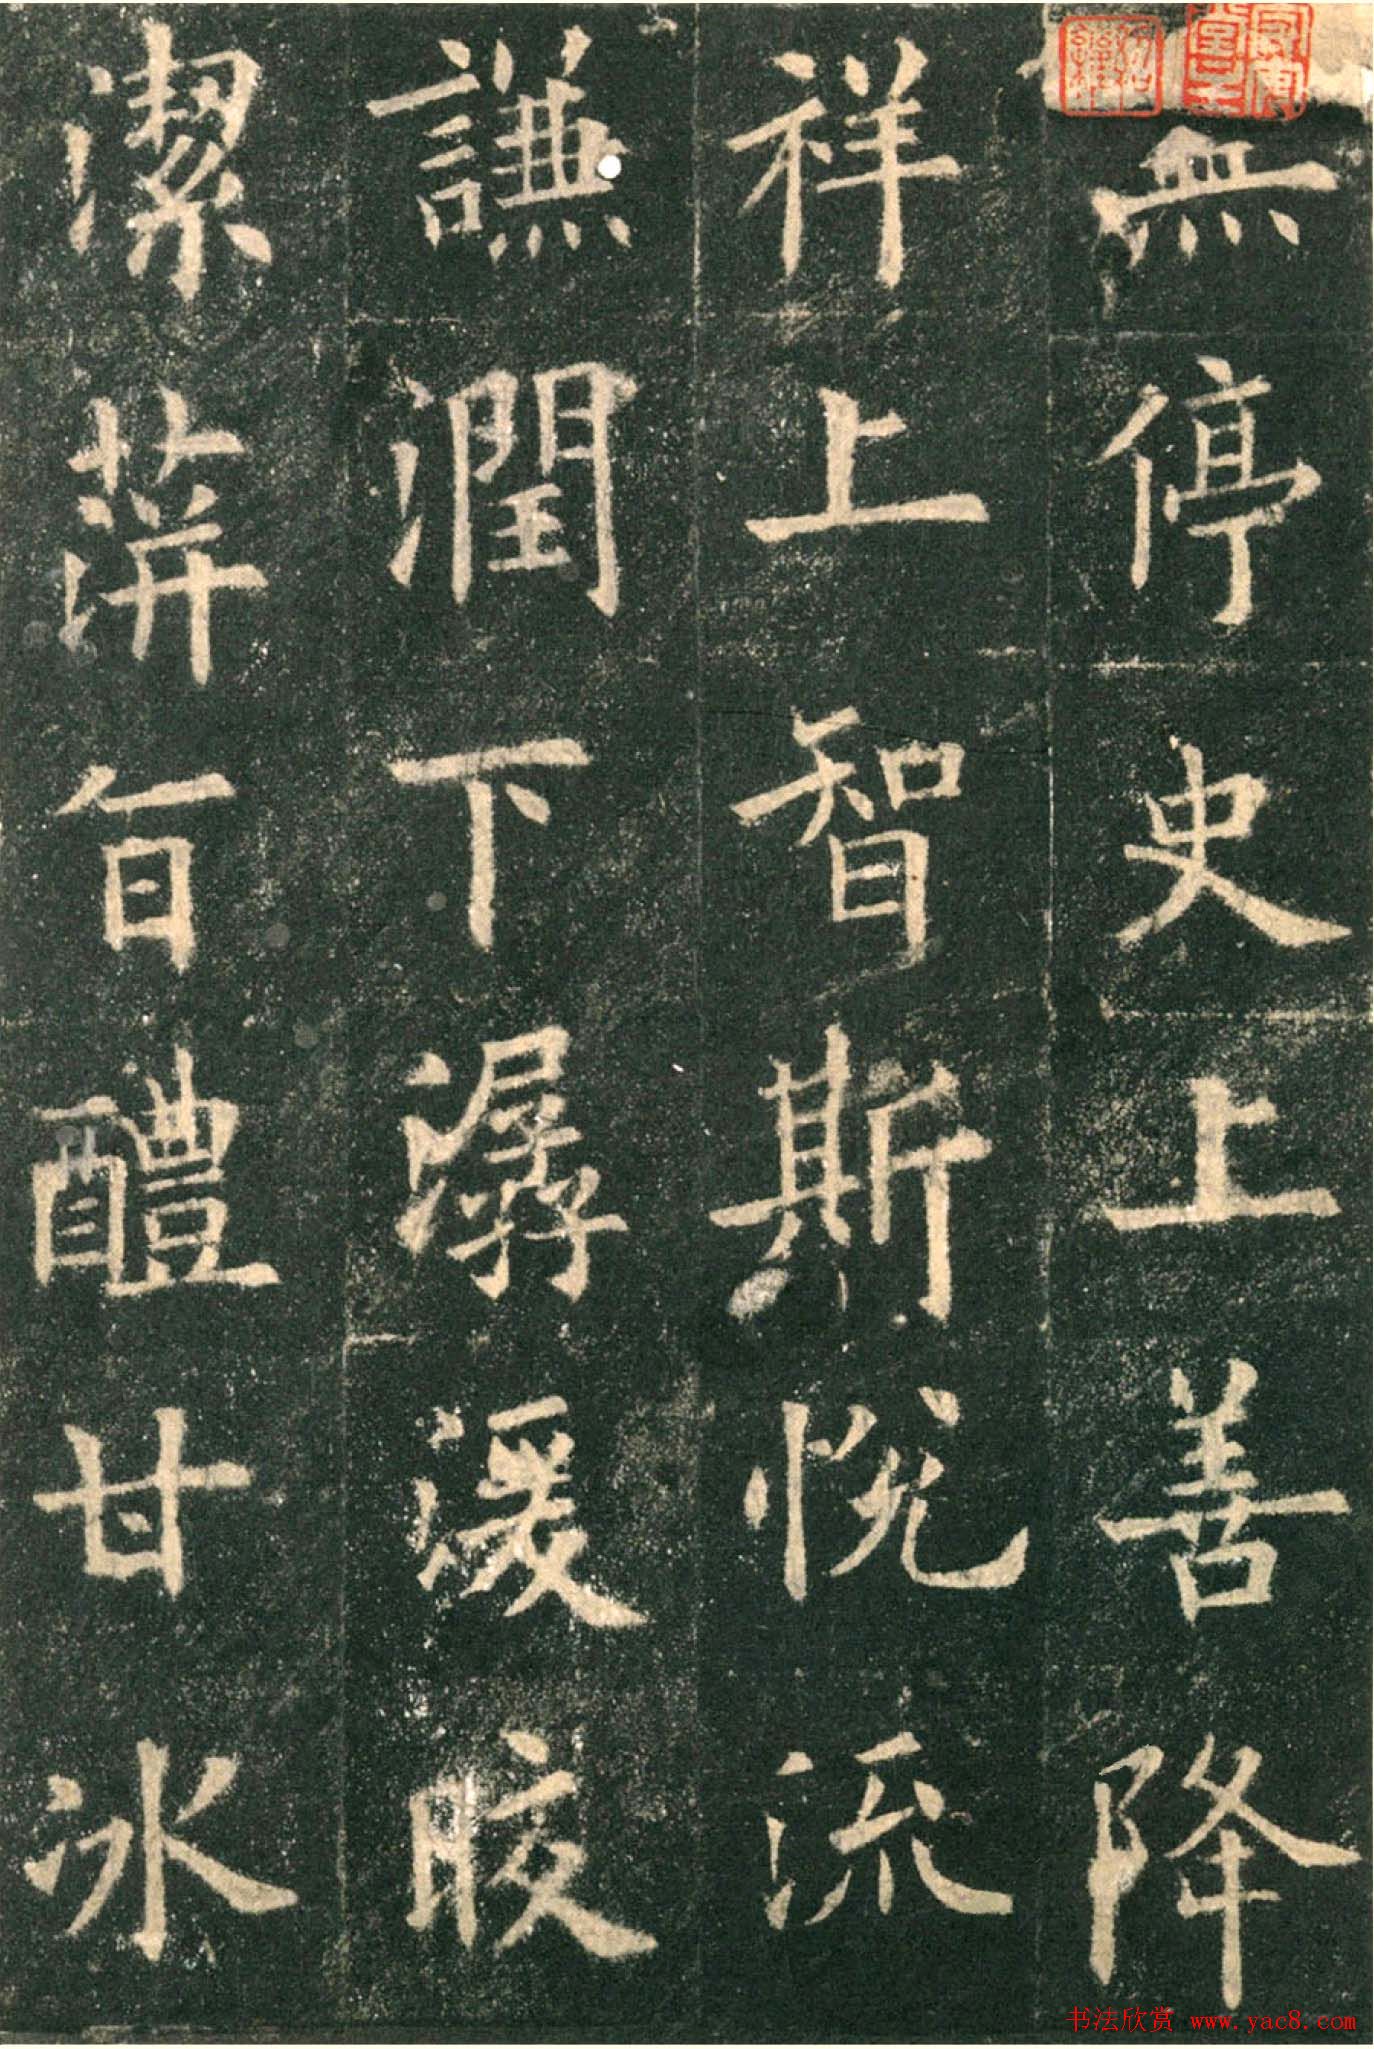 無停史上善降
祥上智斯悅流
謙潤下潺湲皎
潔蓱旨醴甘冰
书法欣赏 www.yac8.com